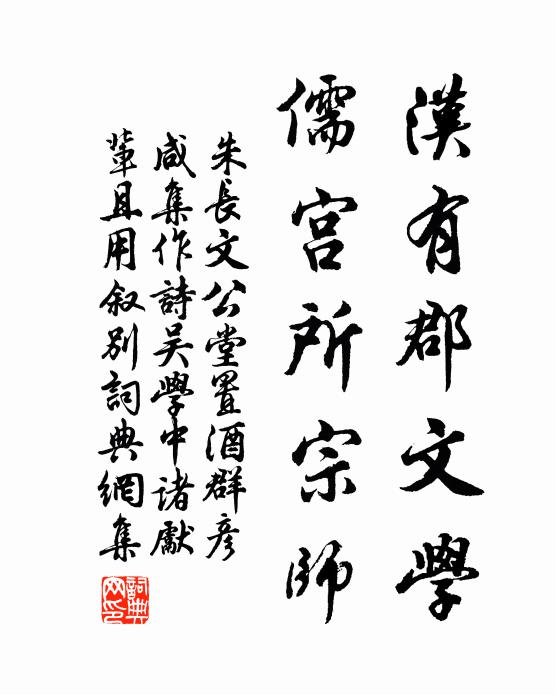 漢有郡文學
儒宮所宗師
朱長文公堂置酒群彥
咸集作詩吴學中諸獻
輩且用叙別詞典網集
詞典網印